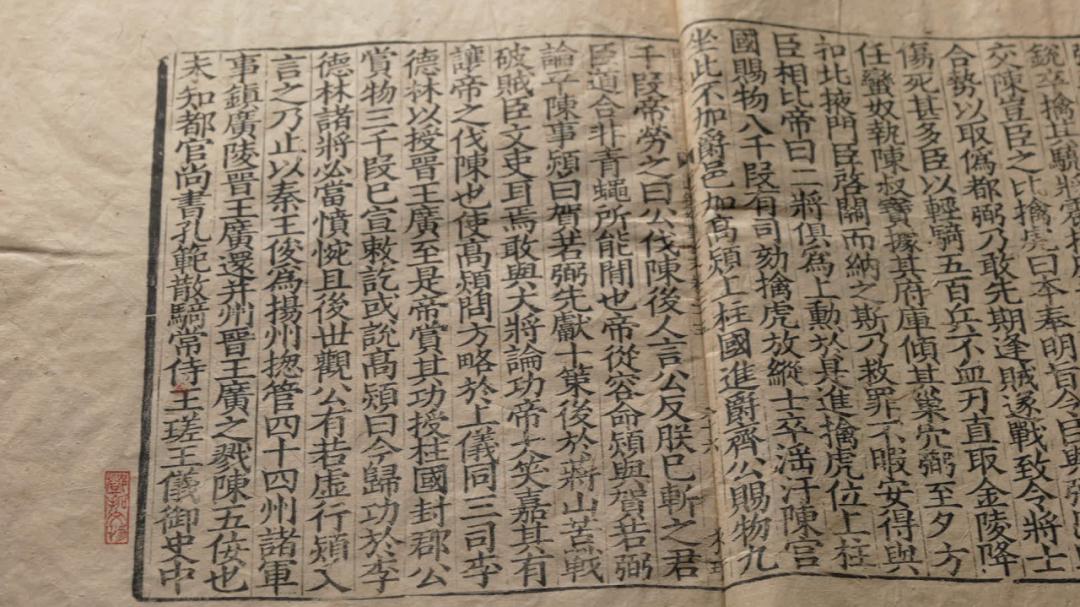 銳卒擒其驍將震揚
交陳豈臣之比擒虎曰本奉明旨令臣與弼
合勢以取偽都弼乃敢先期逢賊遂戰致令將士
傷死甚多臣以輕騎五百兵不血刃直取金陵降
任蠻奴執陳叔寶據其府庫傾其巢穴弼至夕方
扣北掖門臣啓關而納之斯乃救罪不暇安得與
臣相比帝曰二將俱為上勳於是進擒虎位上柱
國賜物八千段有司劾擒虎放縱士卒淫汙陳宮
坐此不加爵邑加高熲上柱國進爵齊公賜物九
千段帝勞之曰公伐陳後人言公反朕已斬之君
臣道合非青蠅所能閒也帝從容命熲與賀若弼
論平陳事熲曰賀若弼先獻十策後於蔣山苦戰
破賊臣文吏耳焉敢與大將論功帝大笑嘉其有
讓帝之伐陳也使高熲問方略於上儀同三司李
德林以授晉王廣至是帝賞其功授柱國封郡公
賞物三千段已宣敕訖或說高熲曰今歸功於李
德林諸將必當憤惋且後世觀公有若虛行熲入
言之乃止以秦王俊為揚州揔管四十四州諸軍
事鎮廣陵晉王廣還并州晉王廣之戮陳五佞也
未知都官尚書孔範散騎常侍王瑳王儀御史中